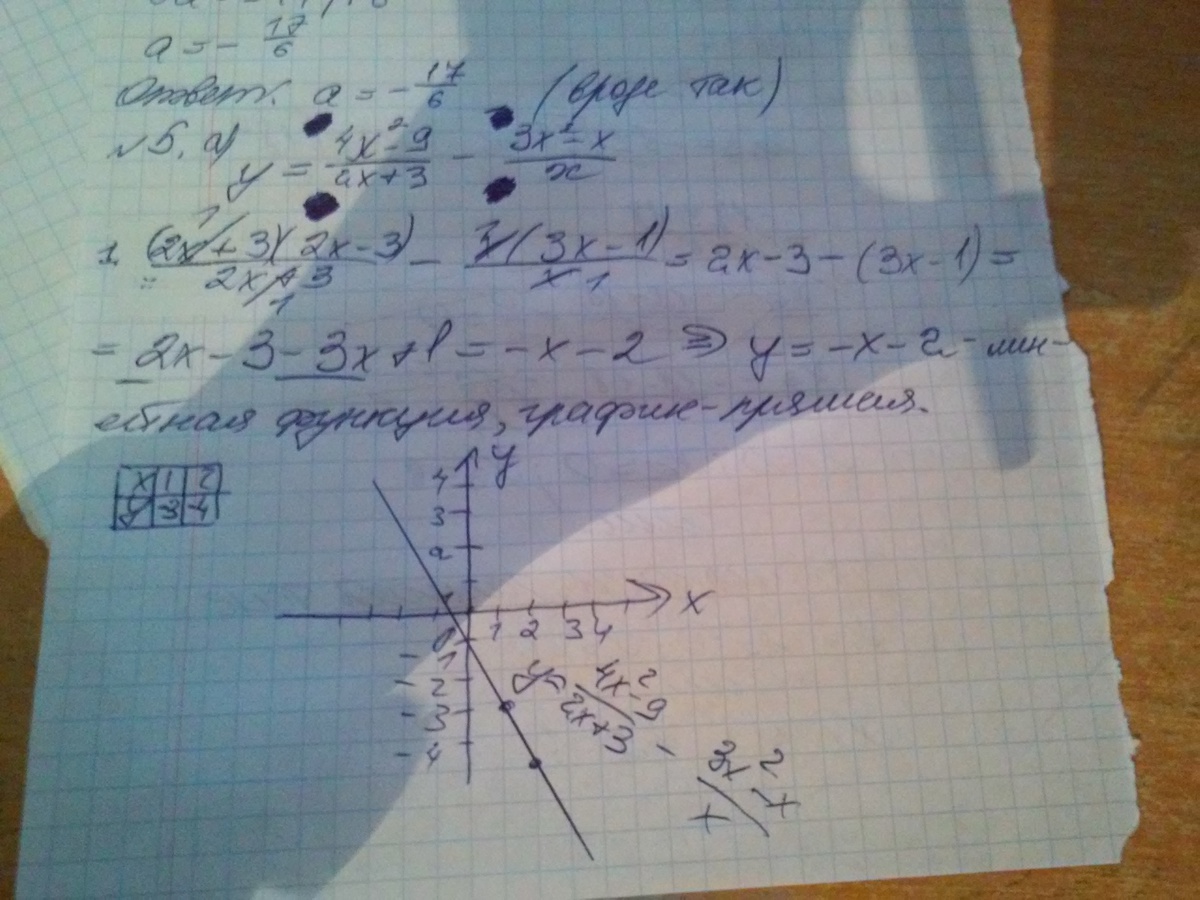 a = - 17/6
Ответ: a = - 17/6 (вроде так)
№5, а)
y = (4x²-9)/(2x+3) - (3x²-x)/x
1. (2x+3)(2x-3)/(2x+3) - x(3x-1)/x = 2x-3-(3x-1) =
1 1 1
= 2x-3-3x+1 = -x-2 => y = -x-2 - лин-
ейная функция, график-прямая.
x 1 2
y -3 -4
y
4
3
2
x
0 1 2 3 4
-1
-2
-3
-4
y = (4x²-9)/(2x+3) - (3x²-x)/x